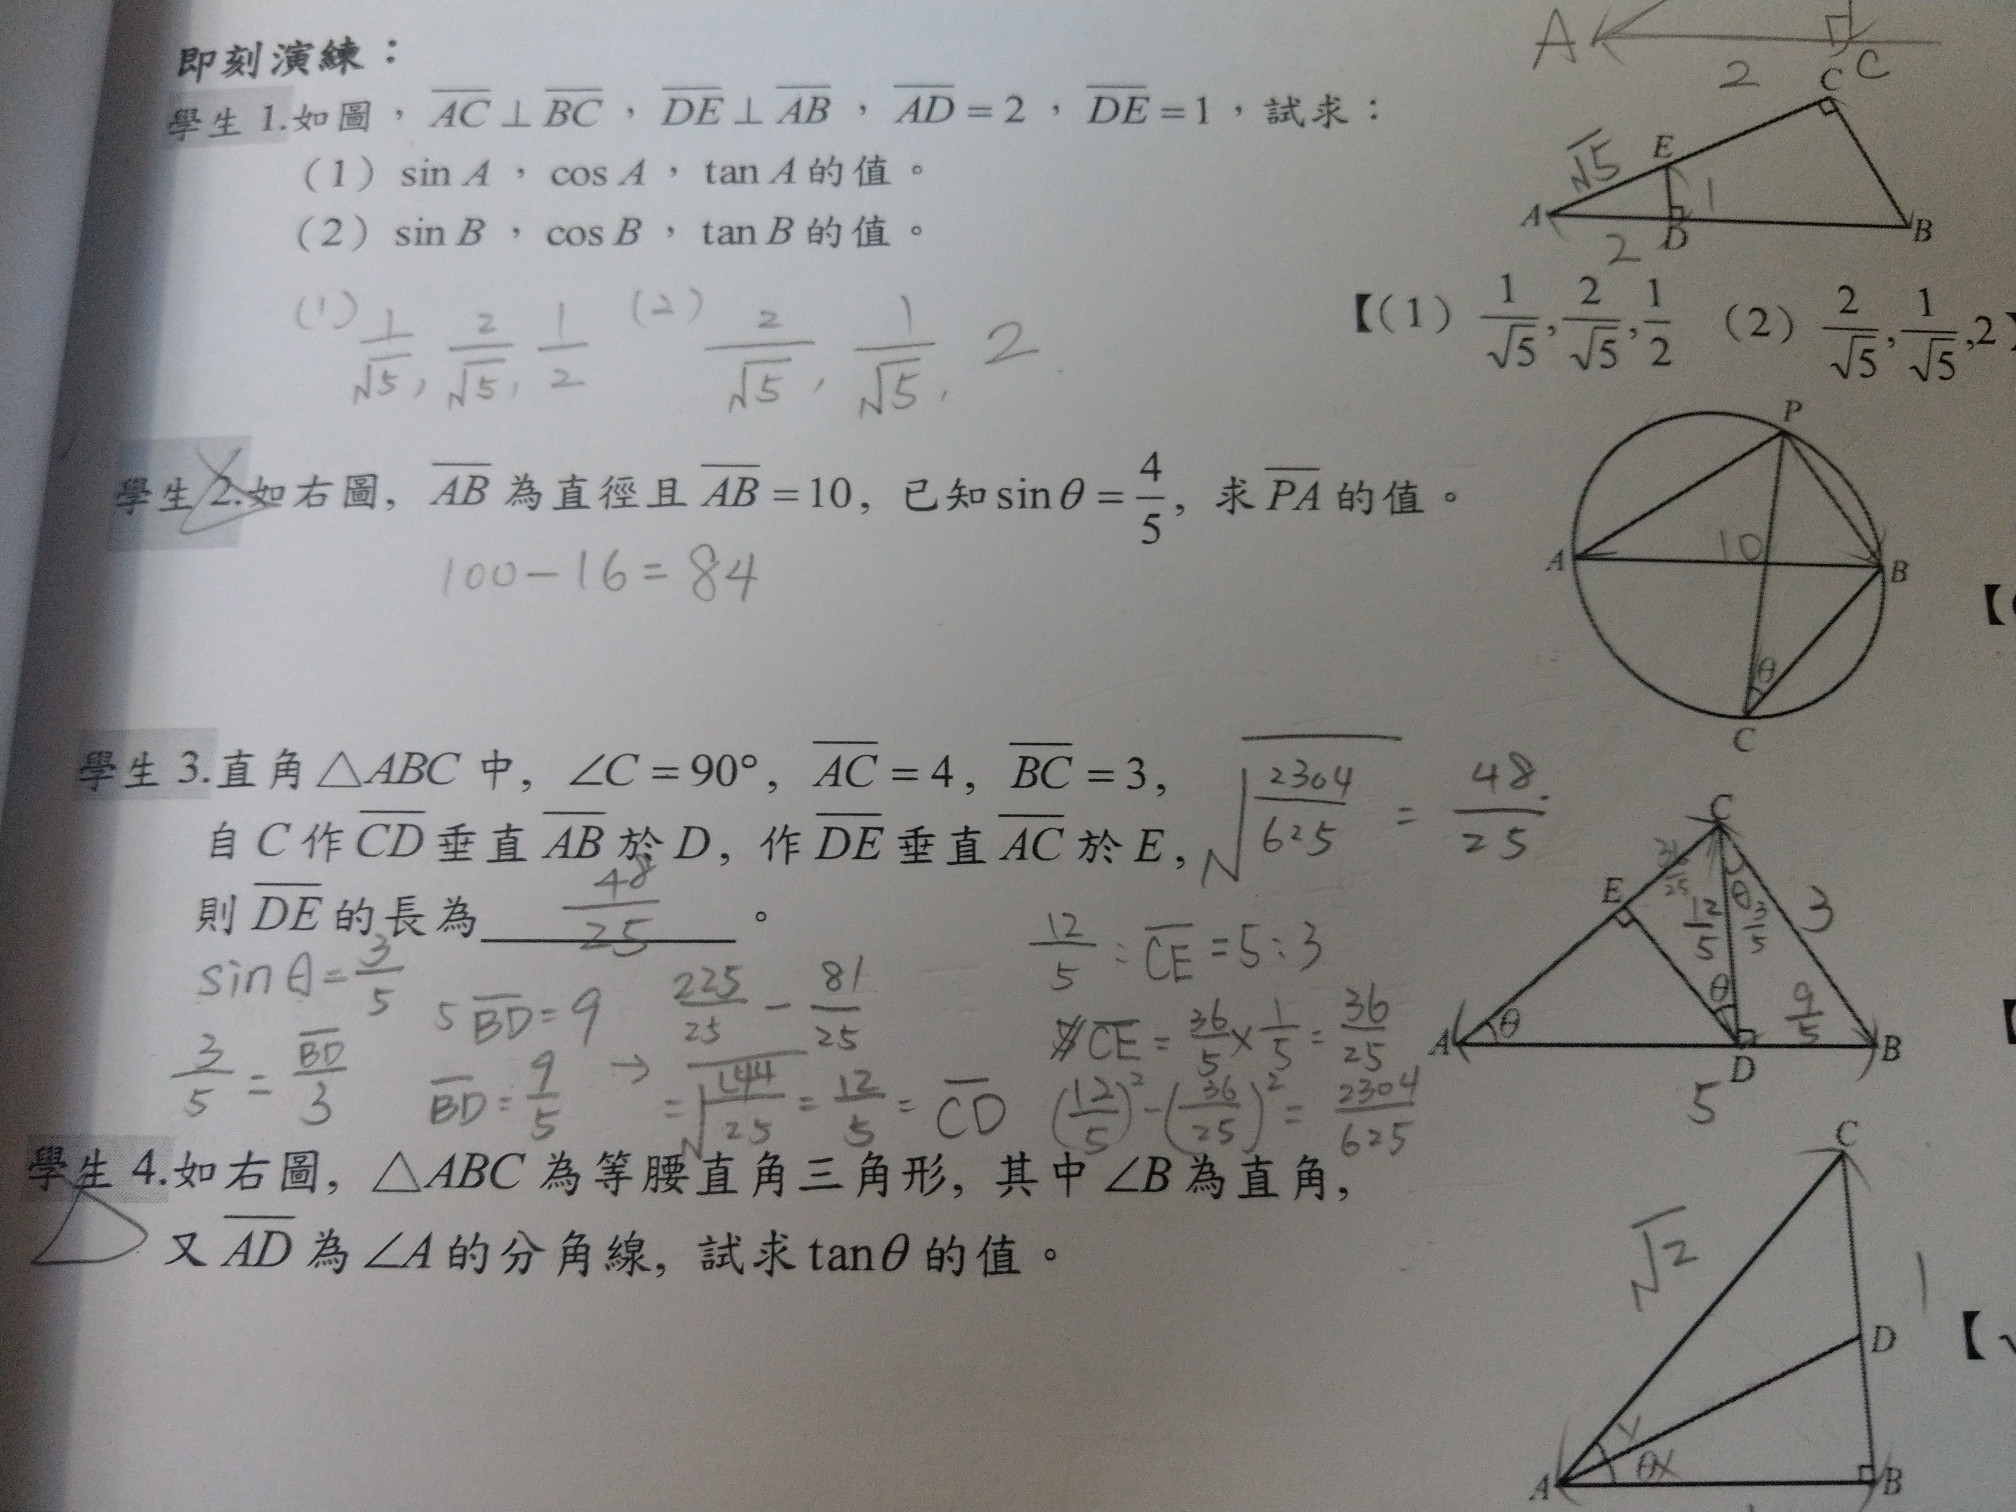 即刻演練：
學生 1.如圖，AC⊥BC，DE⊥AB，AD=2，DE=1，試求：
（1）sin A，cos A，tan A的值。
（2）sin B，cos B，tan B的值。
A 2 C
A B C D E √5 2 1
(1) 1/√5, 2/√5, 1/2 (2) 2/√5, 1/√5, 2
【(1) 1/√5, 2/√5, 1/2 (2) 2/√5, 1/√5, 2】
學生 2.如右圖, AB 為直徑且 AB=10, 已知 sinθ=4/5, 求 PA 的值。
100-16=84
P A B C 10 θ
【
學生 3.直角△ABC 中, ∠C=90°, AC=4, BC=3,
自 C 作 CD 垂直 AB 於 D, 作 DE 垂直 AC 於 E,
則 DE 的長為 48/25 。
√(2304/625) = 48/25
sinθ=3/5
3/5 = BD/3
5BD=9
BD=9/5
→ 225/25 - 81/25
=√(144/25) = 12/5 = CD
12/5 : CE = 5:3
CE = 36/5 × 1/5 = 36/25
(12/5)² - (36/25)² = 2304/625
C E A D B θ θ θ 36/25 12/5 3/5 3 9/5 5
【
學生 4.如右圖, △ABC 為等腰直角三角形, 其中∠B 為直角,
又 AD 為∠A 的分角線, 試求 tanθ 的值。
C D A B √2 1 θ
【√